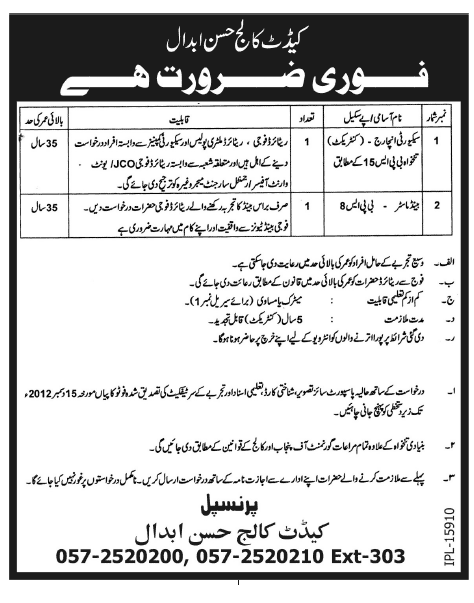 کیڈٹ کالج حسن ابدال
فوری ضرورت ہے
نمبر شمار نام آسامی/پے سکیل تعداد قابلیت بالائی عمر کی حد
1 سکیورٹی انچارج - (کنٹریکٹ) 1 ریٹائرڈ فوجی، ریٹائرڈ ملٹری پولیس اور سکیورٹی کمپنیز سے وابستہ افراد درخواست 35 سال
تنخواہ بی پی ایس 15 کے مطابق دینے کے اہل ہیں اور متعلقہ شعبہ سے وابستہ ریٹائرڈ فوجی JCO/یونٹ
وارنٹ آفیسر/ سارجنٹ میجر وغیرہ کو ترجیح دی جائے گی۔
2 بینڈ ماسٹر - بی پی ایس 8 1 صرف براس بینڈ کا تجربہ رکھنے والے ریٹائرڈ فوجی حضرات درخواست دیں۔ 35 سال
فوجی بینڈ ٹیونز سے واقفیت اور اپنے کام میں مہارت ضروری ہے
الف۔ وسیع تجربے کے حامل افراد کو عمر کی بالائی حد میں رعایت دی جا سکتی ہے۔
ب۔ فوج سے ریٹائرڈ حضرات کو عمر کی بالائی حد میں قانون کے مطابق رعائت دی جائے گی۔
ج۔ کم از کم تعلیمی قابلیت : میٹرک یا مساوی (برائے سیریل نمبر 1)۔
د۔ مدت ملازمت : 5 سال (کنٹریکٹ) قابل تجدید۔
ر۔ دی گئی شرائط پر پورا اترنے والوں کو انٹرویو کے لیے اپنے خرچ پر حاضر ہونا ہوگا۔
۱۔ درخواست کے ساتھ حالیہ پاسپورٹ سائز تصویر، شناختی کارڈ، تعلیمی اسناد اور تجربے کے سرٹیفکیٹ کی تصدیق شدہ فوٹو کاپیاں مورخہ 15 دسمبر 2012ء
تک زیر دستخطی کو پہنچ جانی چاہئیں۔
۲۔ بنیادی تنخواہ کے علاوہ تمام مراعات گورنمنٹ آف پنجاب اور کالج کے قوانین کے مطابق دی جائیں گی۔
۳۔ پہلے سے ملازمت کرنے والے حضرات اپنے ادارے سے اجازت نامہ کے ساتھ درخواست ارسال کریں۔ نامکمل درخواستوں پر غور نہیں کیا جائے گا۔
پرنسپل
کیڈٹ کالج حسن ابدال
057-2520200, 057-2520210 Ext-303
IPL-15910